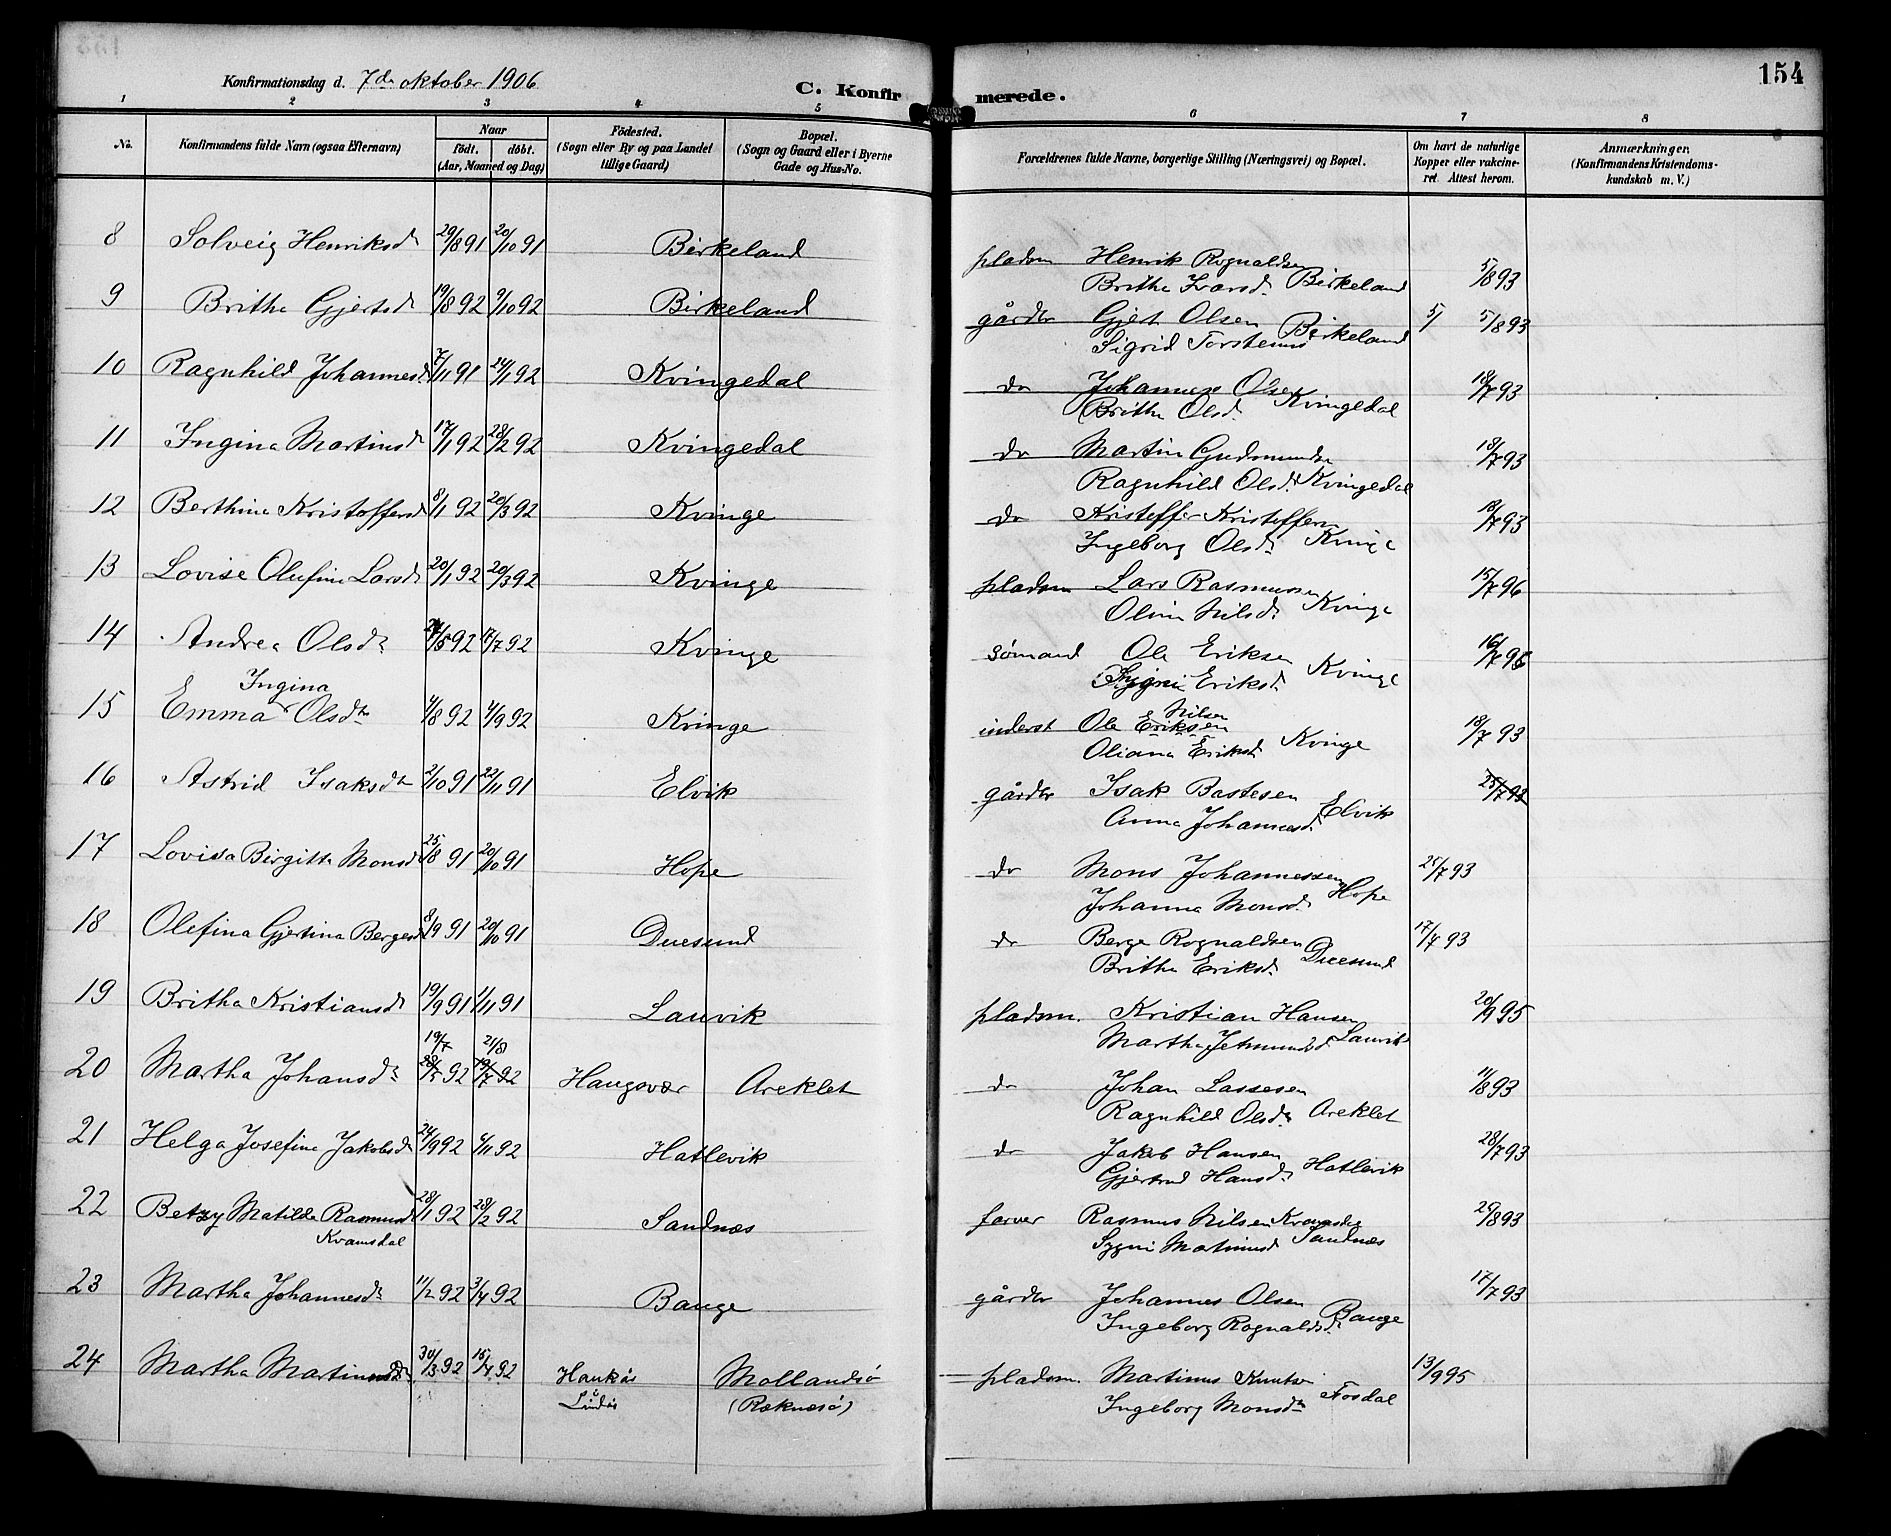 154
Konfirmationsdag d. 7de oktober 1906
C. Konfirmerede.
1 2 3 4 5 6 7 8
No. Konfirmandens fulde Navn (ogsaa Efternavn) Naar født. døbt. (Aar, Maaned og Dag) Fødested. (Sogn eller By og paa Landet tillige Gaard) Bopæl. (Sogn og Gaard eller i Byerne Gade og Hus-No. Forældrenes fulde Navne, borgerlige Stilling (Næringsvei) og Bopæl. Om havt de naturlige Kopper eller vakcineret. Attest herom. Anmærkninger. (Konfirmandens Kristendomskundskab m. V.)
8 Solveig Henriksd. 29/8 91 20/10 91 Birkeland pladsm Henrik Rognaldsen
Britha Ivarsd. Birkeland 5/8 93
9 Britha Gjertsd 19/8 92 9/10 92 Birkeland gårdbr Gjert Olsen
Sigrid Torstensd Birkeland 5/ 5/8 93
10 Ragnhild Johannesd. 7/11 91 24/1 92 Kvingedal do Johannes Olsen
Britha Olsd. Kvingedal 18/7 93
11 Ingina Martinsd 17/1 92 28/2 92 Kvingedal do Martin Gudmundsen
Ragnhild Olsd. Kvingedal 18/7 93
12 Berthina Kristoffersd 8/1 92 20/3 92 Kvinge do Kristoffer Kristoffersen
Ingeborg Olsd. Kvinge 18/7 93
13 Lovise Olufine Larsd. 20/1 92 20/3 92 Kvinge pladsm Lars Rasmussen
Olina Nilsd. Kvinge 15/7 96
14 Andrea Olsd. /5 92 17/7 92 Kvinge sømand Ole Eriksen
Eriksd. Kvinge 16/7 96
Ingina
15 Emma Olsdtr 4/8 92 4/9 92 Kvinge inderst Ole Eriksen Nilsen
Oliana Eriksd. Kvinge 18/7 93
16 Astrid Isaksdtr 2/10 91 22/11 91 Elvik gårdbr Isak Bastesen
Anna Johannesd. Elvik 25/7 93
17 Lovisa Birgitta Monsd 25/8 91 20/10 91 Hope do Mons Johannessen
Johanna Monsd. Hope 25/7 93
18 Olefina Gjertina Bergesd 8/9 91 20/10 91 Duesund do Berge Rognaldsen
Britha Eriksd. Duesund 17/7 93
19 Britha Kristiansd 19/9 91 1/11 91 Lauvik pladsm. Kristian Hansen
Martha Jetmundsd Lauvik 20/9 95
19/7 21/8
20 Martha Johansd. 28/5 92 10/7 92 Haugsvær Areklet do Johan Lassesen
Ragnhild Olsd. Areklet 11/8 93
21 Helga Josefine Jakobsd 24/9 92 6/11 92 Hatlevik do Jakob Hansen
Gjertrud Hansd. Hatlevik 28/7 93
22 Betzy Matilda Rasmusd 28/1 92 28/2 92 Sandnæs farver Rasmus Nilsen Kvamsdal
Kvamsdal
Sygni Martinusd Sandnæs 29/8 93
23 Martha Johannesd. 11/2 92 3/4 92 Bauge gårdbr Johannes Olsen
Ingeborg Rognaldsd. Bauge 17/7 93
24 Martha Martinusd. 30/3 92 18/4 92 Haukås Mollandsø pladsm. Martinus Knutsen
Lindås (Ræknesø) Ingeborg Monsdtr Fosdal 13/9 95